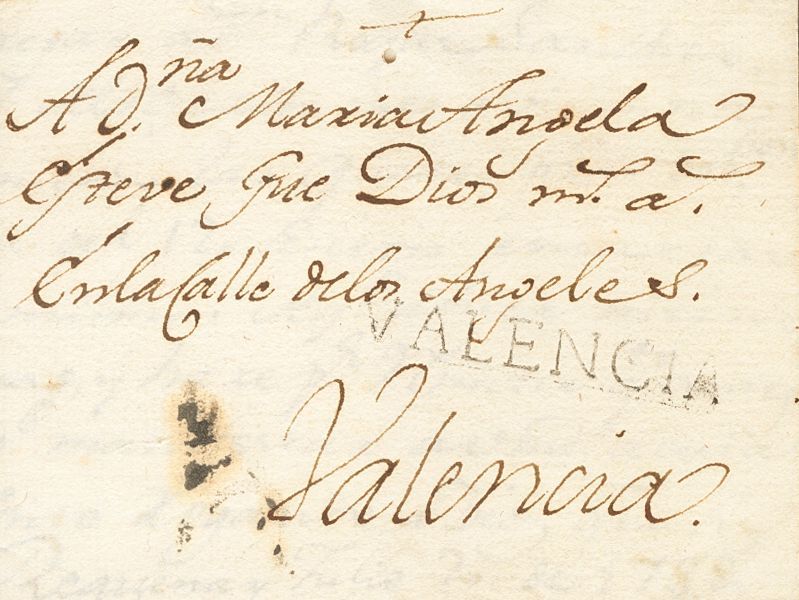 A d.ña Maria Angela
Esteve Gue Dios ms. as.
En la Calle de los Angeles.
VALENCIA
Valencia.